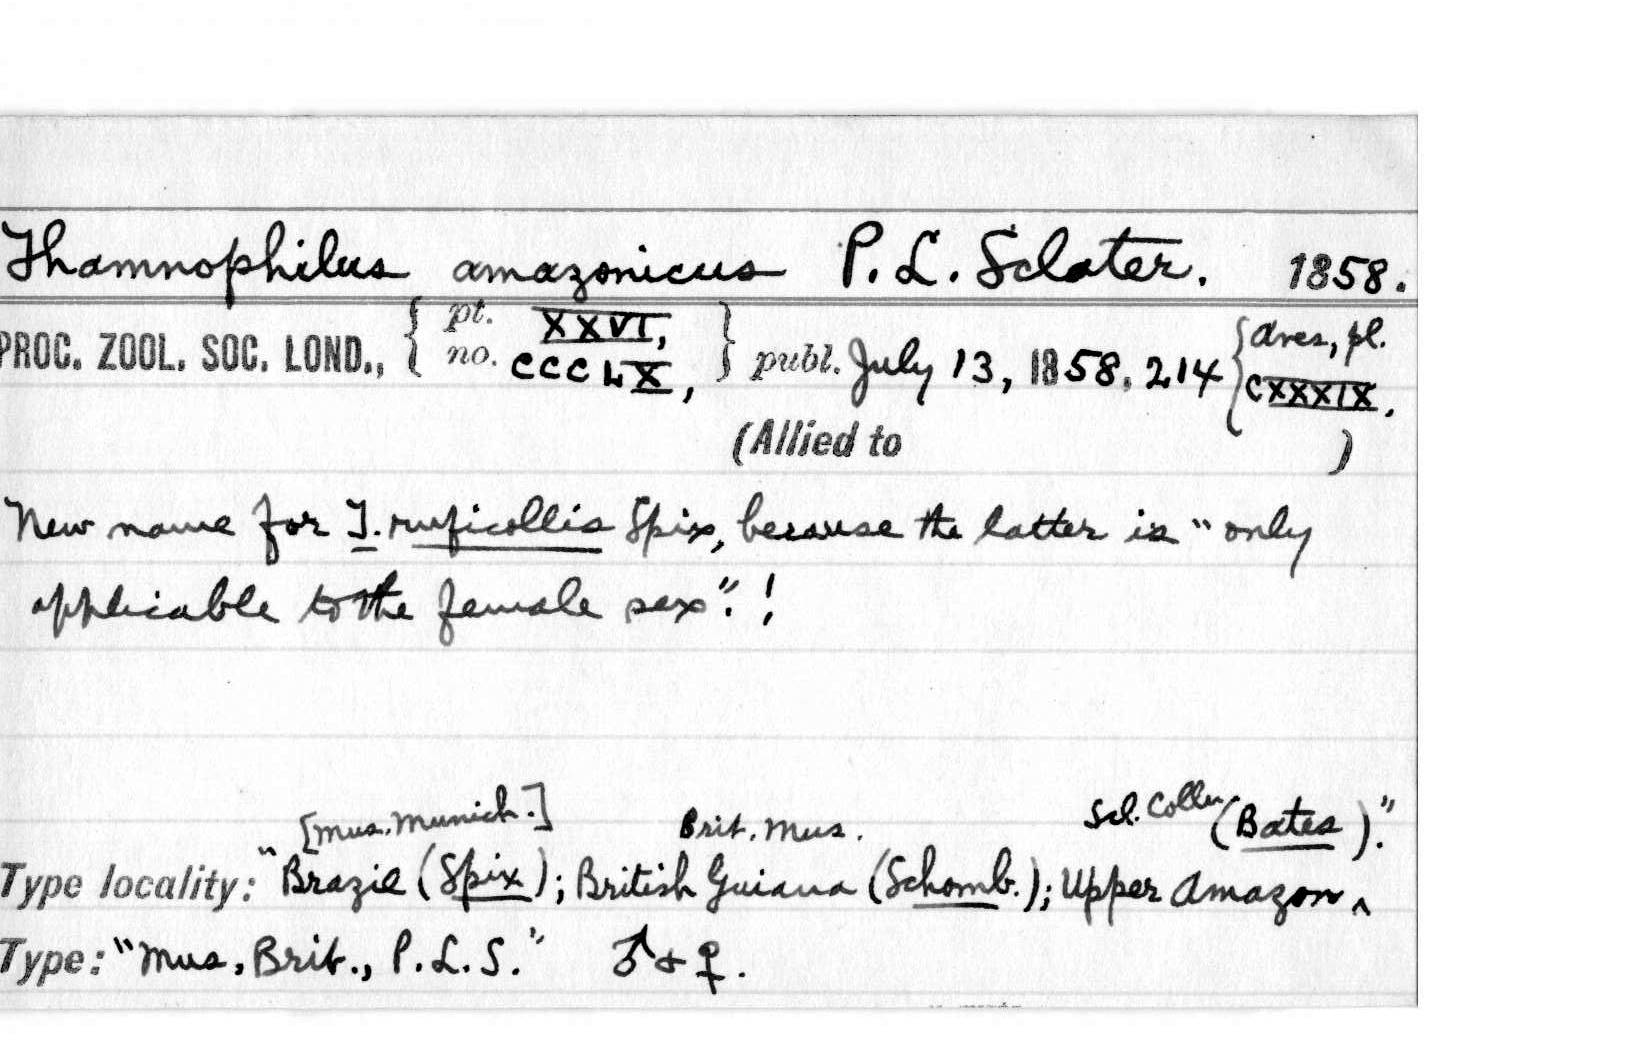 Thamnophilus amazonicus P. L. Sclater. 1858.
PROC. ZOOL. SOC. LOND., { pt. XXVI, no. CCCLX, } publ. July 13, 1858, 214 { Aves, pl. CXXXIX.
(Allied to )
New name for T. ruficollis Spix, because the latter is "only
applicable to the female sex". !
[Mus. Munich.] Brit. Mus. Scl. Colln (Bates)."
Type locality: "Brazil (Spix); British Guiana (Schomb.); Upper Amazon ^
Type: "Mus. Brit., P. L. S." ♂ & ♀.